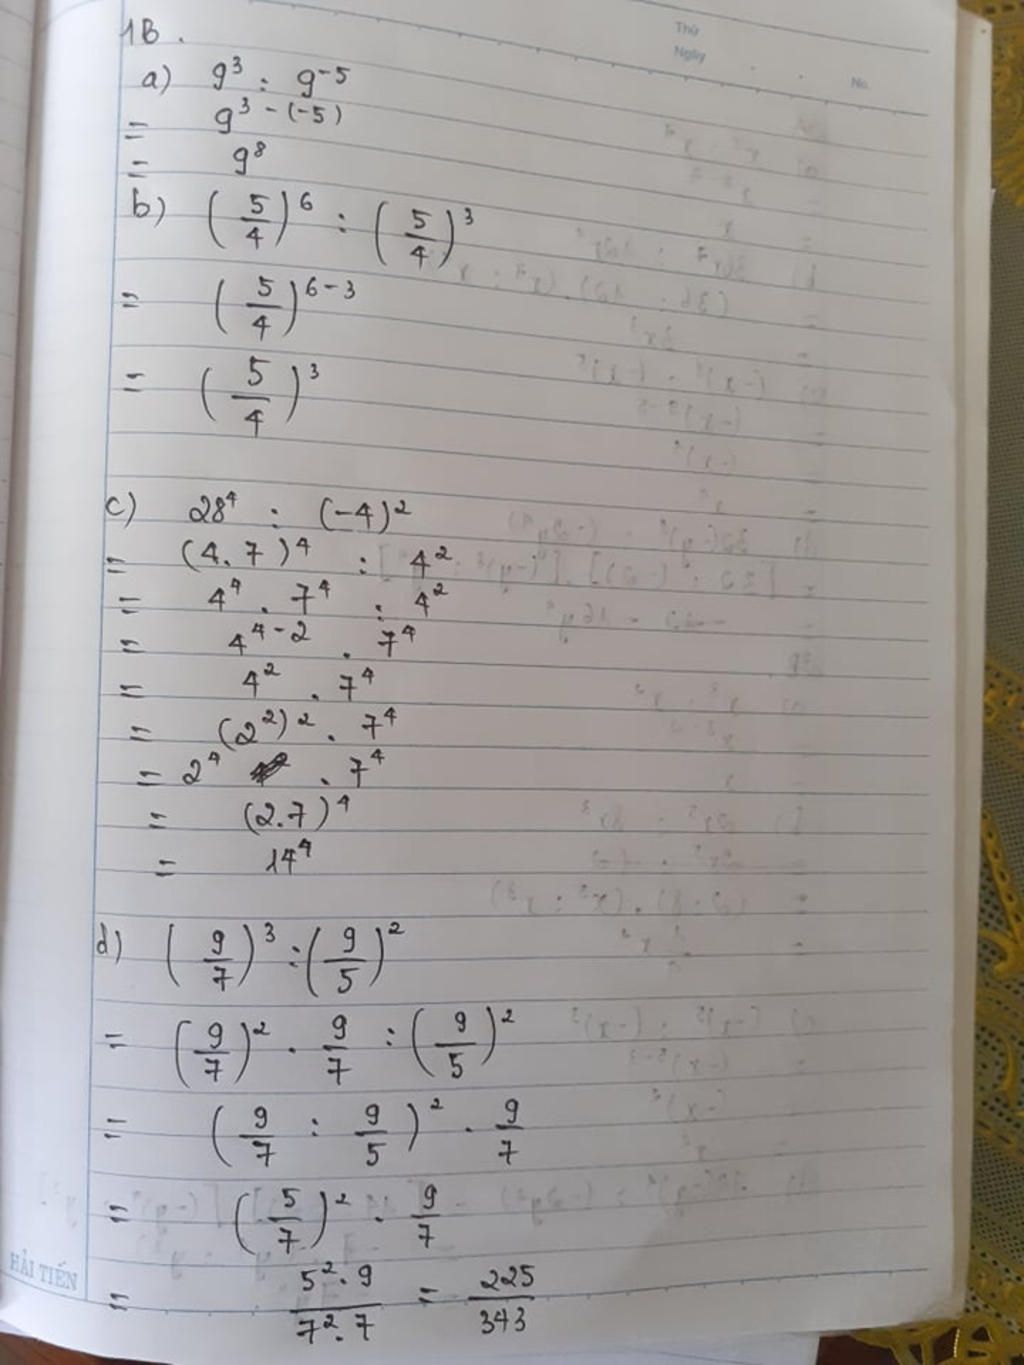 Thứ
Ngày
No.
1B.
a) 9³ : 9⁻⁵
= 9³ ⁻ ⁽⁻⁵⁾
= 9⁸
b) (5/4)⁶ : (5/4)³
= (5/4)⁶⁻³
= (5/4)³
c) 28⁴ : (-4)²
= (4.7)⁴ : 4²
= 4⁴ . 7⁴ : 4²
= 4⁴⁻² . 7⁴
= 4² . 7⁴
= (2²)² . 7⁴
= 2⁴ . 7⁴
= (2.7)⁴
= 14⁴
d) (9/7)³ : (9/5)²
= (9/7)² . 9/7 : (9/5)²
= (9/7 : 9/5)² . 9/7
= (5/7)² . 9/7
= 5².9/7².7 = 225/343
HẢI TIẾN